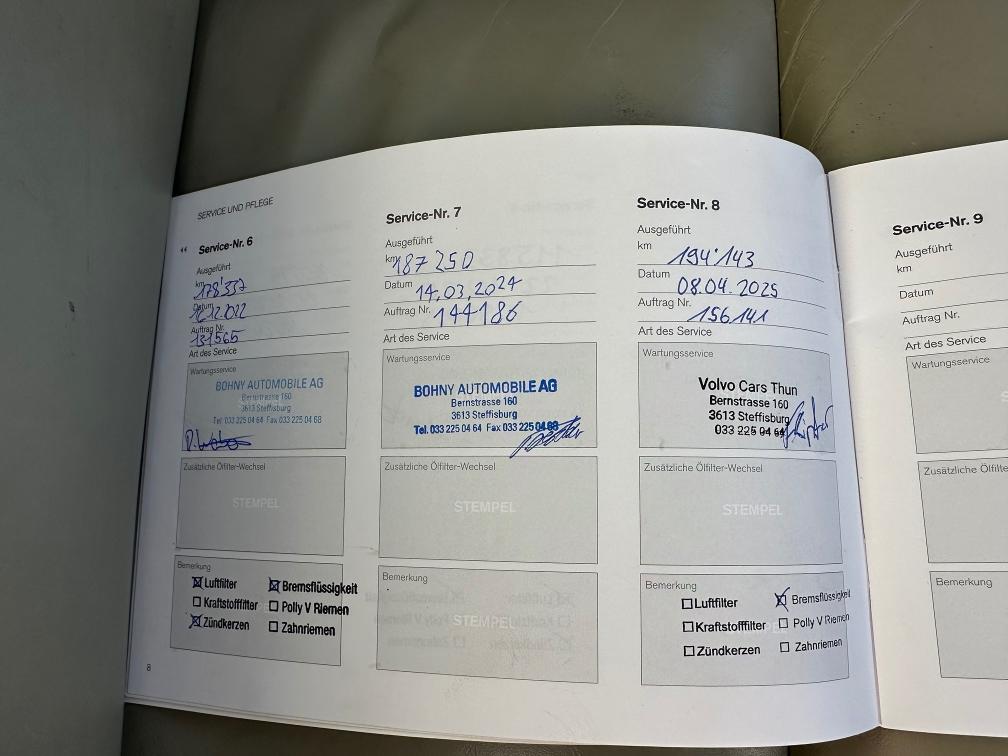 SERVICE UND PFLEGE
Service-Nr. 6
Ausgeführt
km 178'337
Datum
12.2022
Auftrag Nr.
131565
Art des Service
Wartungsservice
BOHNY AUTOMOBILE AG
Bernstrasse 160
3613 Steffisburg
Tel. 033 225 04 64 Fax 033 225 04 68
Zusätzliche Ölfilter-Wechsel
STEMPEL
Bemerkung
☒ Luftfilter ☒ Bremsflüssigkeit
☐ Kraftstofffilter ☐ Polly V Riemen
☒ Zündkerzen ☐ Zahnriemen
8
Service-Nr. 7
Ausgeführt
km 187 250
Datum 14.03.2024
Auftrag Nr. 144186
Art des Service
Wartungsservice
BOHNY AUTOMOBILE AG
Bernstrasse 160
3613 Steffisburg
Tel. 033 225 04 64 Fax 033 225 04 68
Zusätzliche Ölfilter-Wechsel
STEMPEL
Bemerkung
STEMPEL
Service-Nr. 8
Ausgeführt
km 194'143
Datum 08.04.2025
Auftrag Nr. 156141
Art des Service
Wartungsservice
Volvo Cars Thun
Bernstrasse 160
3613 Steffisburg
033 225 04 64
Zusätzliche Ölfilter-Wechsel
STEMPEL
Bemerkung
☐ Luftfilter ☒ Bremsflüssigkeit
☐ Kraftstofffilter ☐ Polly V Riemen
☐ Zündkerzen ☐ Zahnriemen
Service-Nr. 9
Ausgeführt
km
Datum
Auftrag Nr.
Art des Service
Wartungsservice
Zusätzliche Ölfilte
Bemerkung